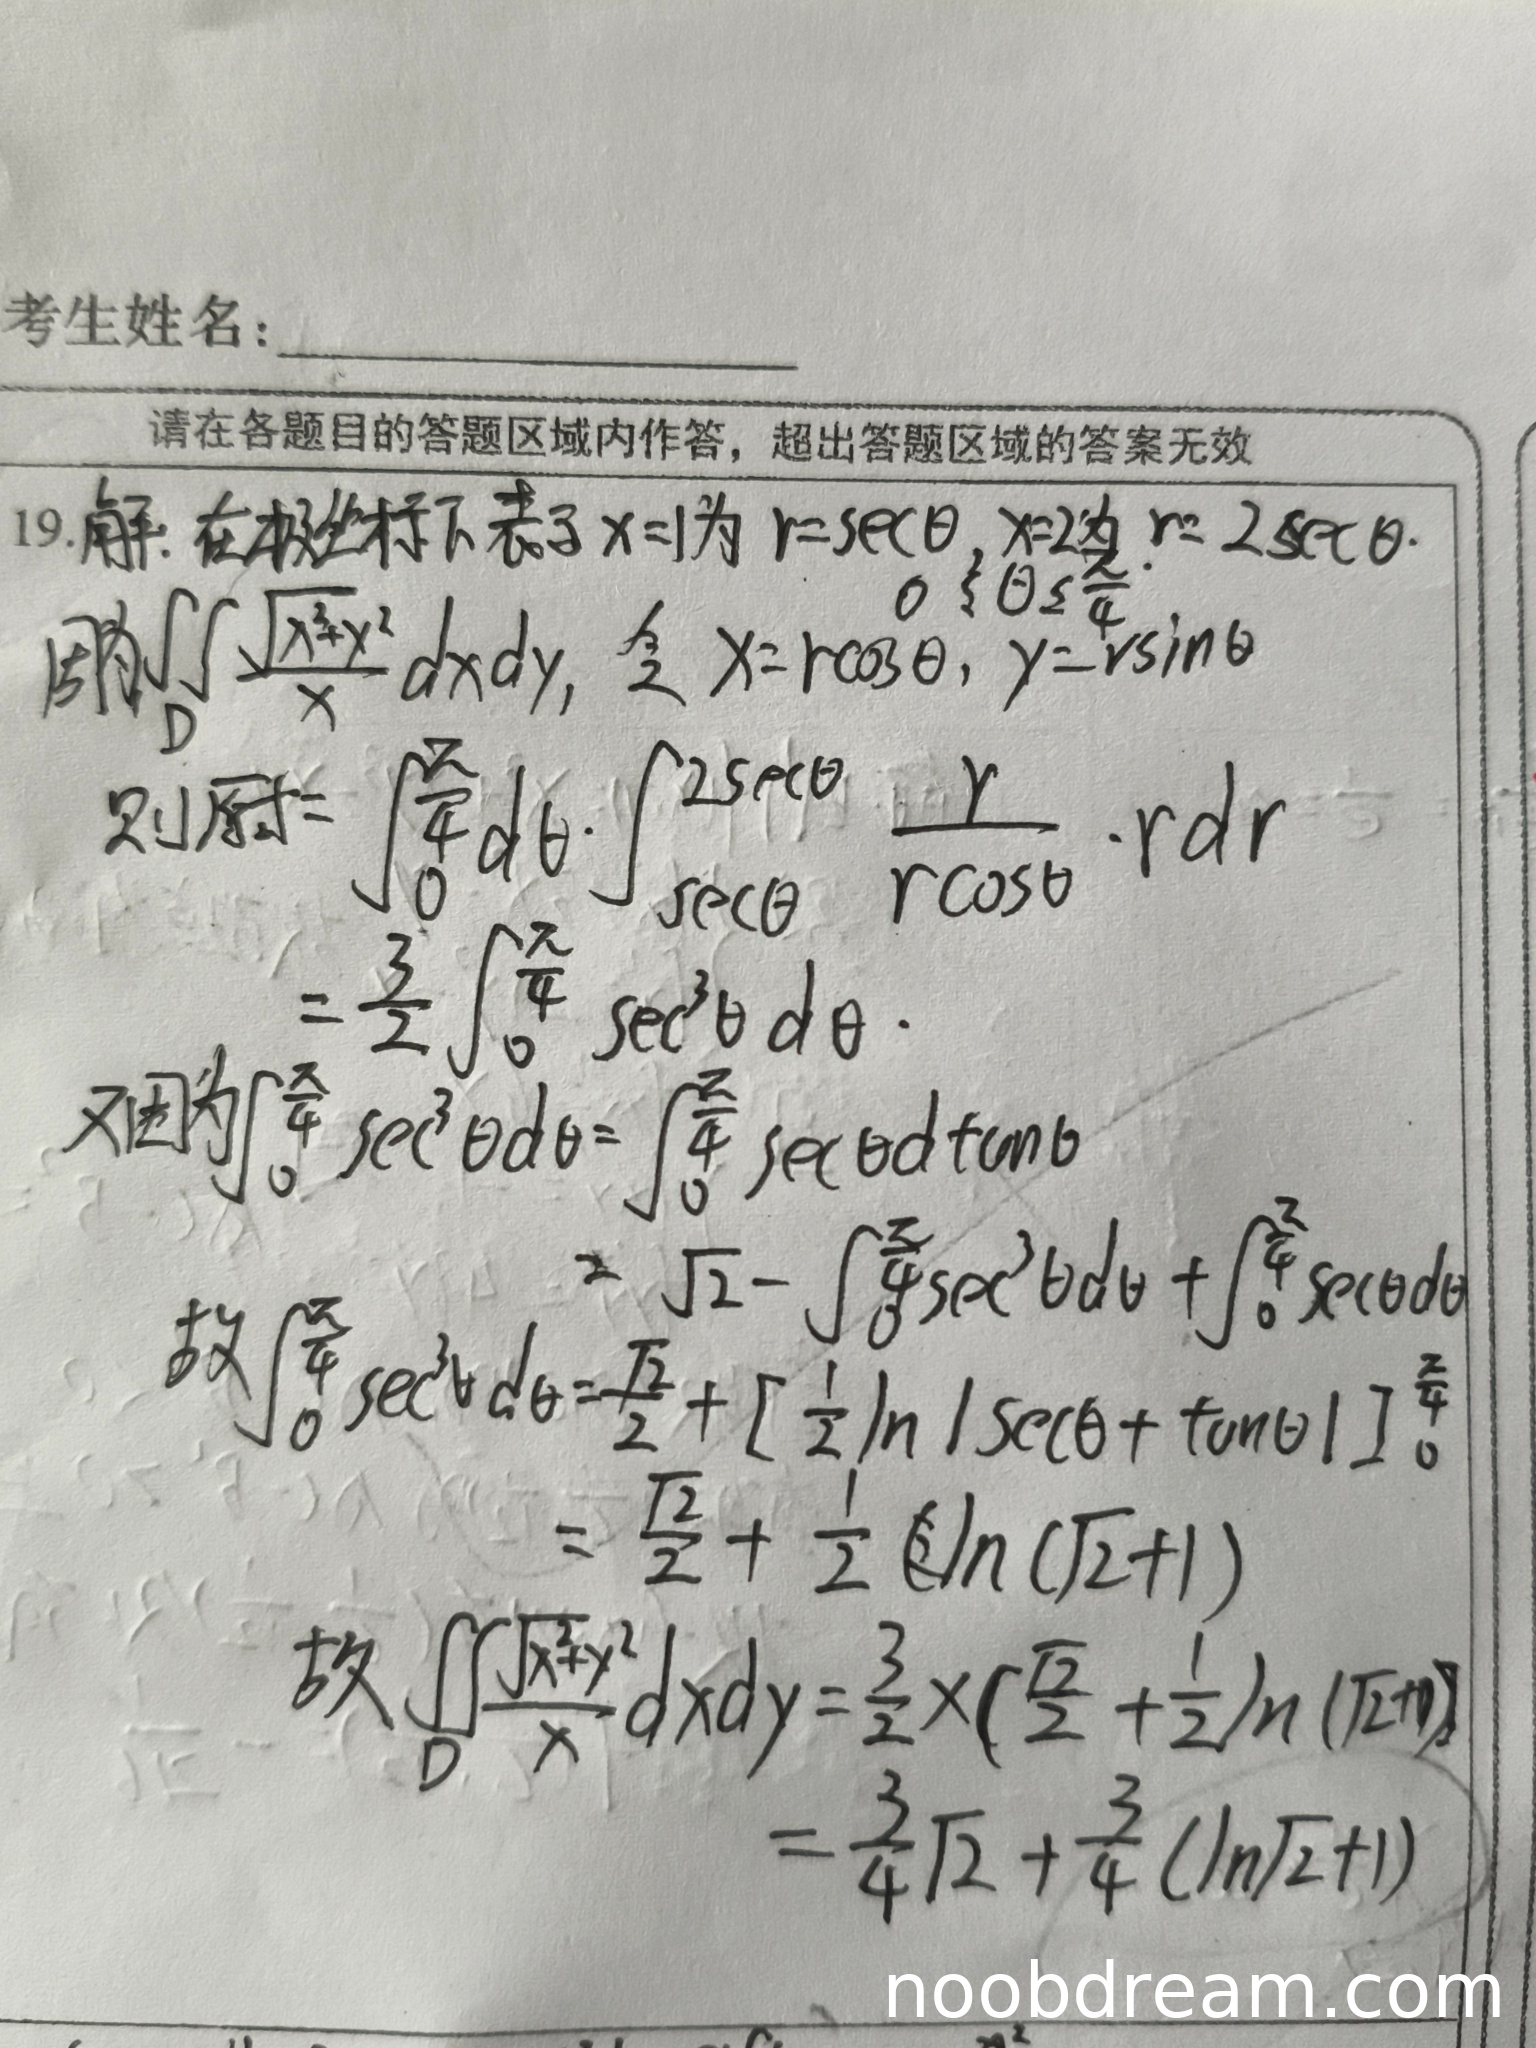 考生姓名:
请在各题目的答题区域内作答，超出答题区域的答案无效
19.解：在极坐标下表示 x=1为 r=secθ, x=2为 r=2secθ.
0≤θ≤π/4
因为∬_D √(x²+y²)/x dxdy, 令 x=rcosθ, y=rsinθ
则原式= ∫_0^{π/4} dθ·∫_{secθ}^{2secθ} r/(rcosθ) ·rdr
= 3/2 ∫_0^{π/4} sec³θ dθ.
又因为∫_0^{π/4} sec³θdθ=∫_0^{π/4} secθdtanθ
= √2 - ∫_0^{π/4} sec³θdθ + ∫_0^{π/4} secθdθ
故∫_0^{π/4} sec³θdθ=√2/2 + [1/2 ln|secθ+tanθ|]_0^{π/4}
= √2/2 + 1/2 ln(√2+1)
故 ∬_D √(x²+y²)/x dxdy = 3/2 ×(√2/2 + 1/2 ln(√2+1))
= 3/4 √2 + 3/4 (ln√2+1)
noobdream.com